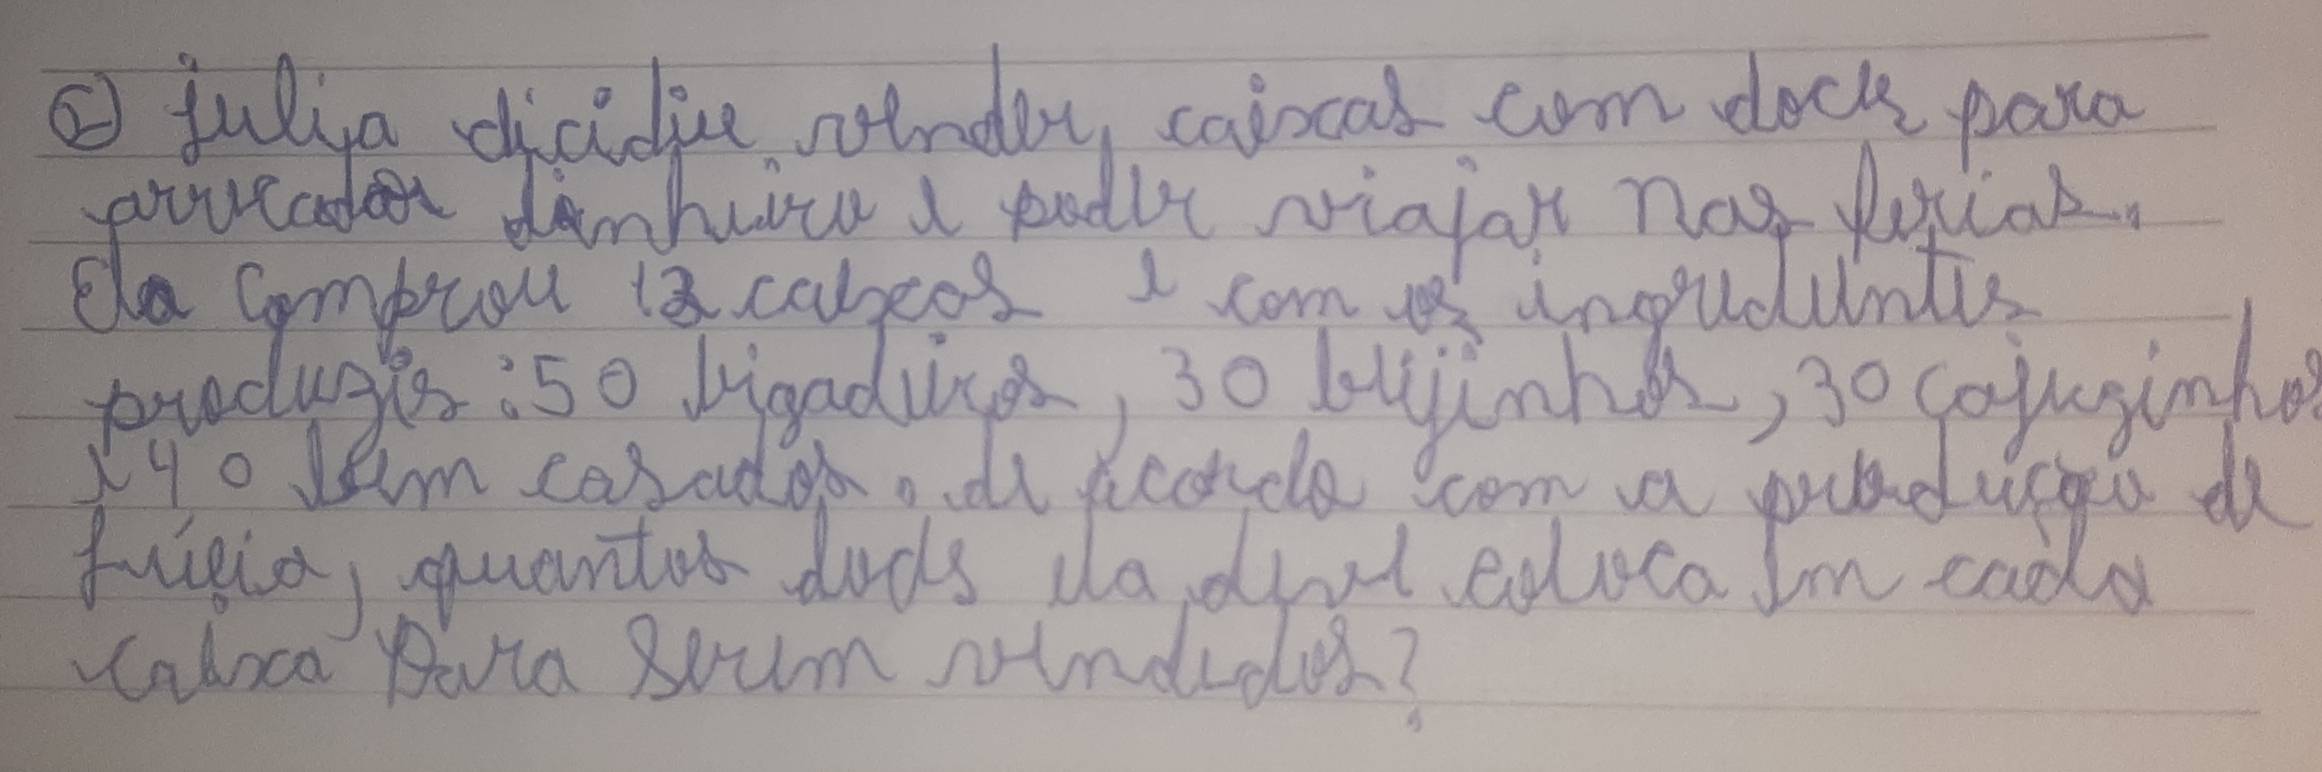 ② Julia dicidiu vender caixas com doces para
arrecadar dinheiro e poder viajar nas ferias.
Ela comprou 12 caixas e com os ingredientes
produzis: 50 brigadeiros, 30 beijinhos, 30 cajuzinhos
e 40 bem casados. de acordo com a produção de
Júlia, quantos doces ela deve coloca em cada
caixa para serem vendidos?